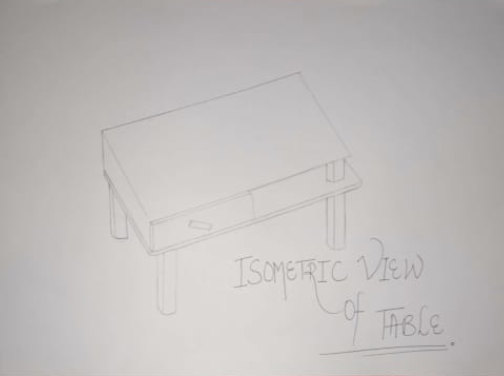 ISOMETRIC VIEW
of TABLE.